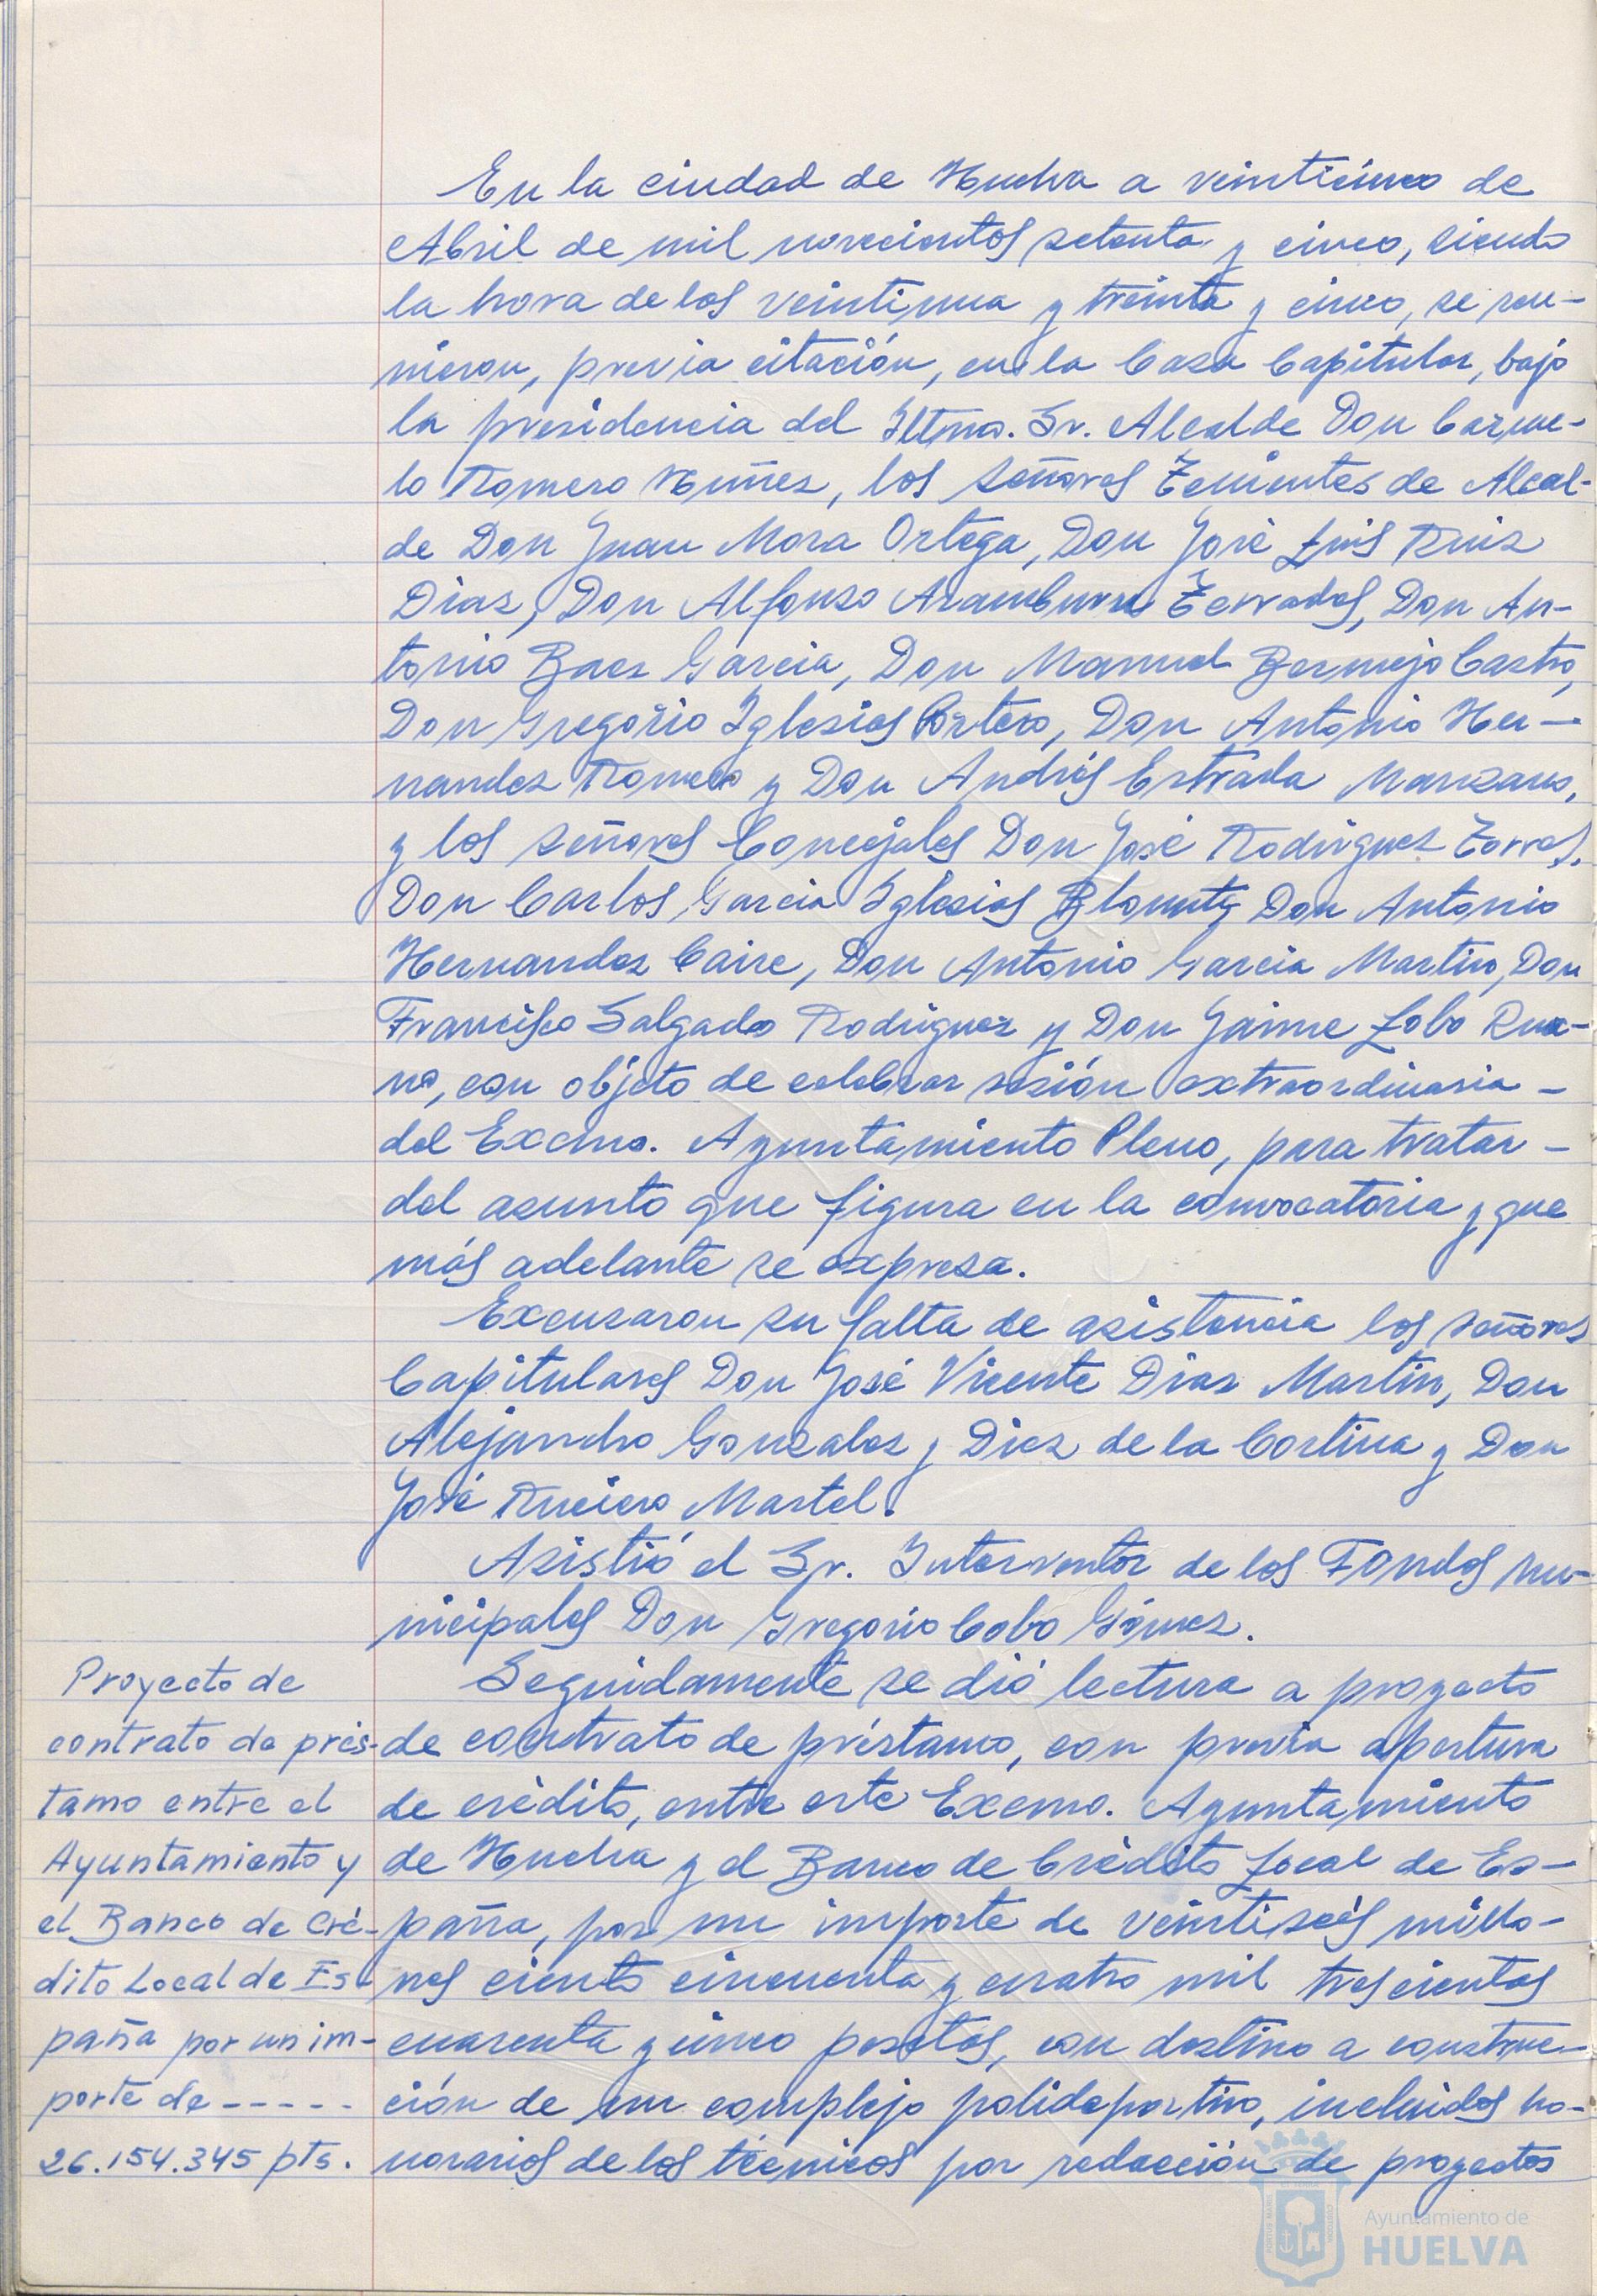 En la ciudad de Huelva a veinticinco de
Abril de mil novecientos setenta y cinco, siendo
la hora de los veintinua y treinta y cinco, se reu-
nieron, previa citación, en la Casa Capitular, bajo
la presidencia del Iltmo. Sr. Alcalde Don Carme-
lo Romero Nuñez, los señores Tenientes de Alcal-
de Don Juan Mora Ortega, Don José Luis Ruiz
Diaz, Don Alfonso Aramburu Terrades, Don An-
tonio Baez Garcia, Don Manuel Bermejo Castro,
Don Gregorio Iglesias Portero, Don Antonio Her-
nandez Romero y Don Andrés Estrada Manzano,
y los señores Concejales Don José Rodriguez Torres,
Don Carlos Garcia Iglesias Don Antonio
Hernandez Caire, Don Antonio Garcia Martin, Don
Francisco Salgado Rodriguez y Don Jaime Lobo Rua-
no, con objeto de celebrar sesión extraordinaria -
del Excmo. Ayuntamiento Pleno, para tratar -
del asunto que figura en la convocatoria y que
más adelante se expresa.
Excusaron su falta de asistencia los señores
Capitulares Don José Vicente Diaz Martin, Don
Alejandro Gonzalez y Diez de la Cortina y Don
José Ruciero Martel.
Asistió el Sr. Interventor de los Fondos mu-
nicipales Don Gregorio Cobo Gómez.
Proyecto de
contrato de prés-
tamo entre el
Ayuntamiento y
el Banco de Cré-
dito Local de Es-
paña por un im-
porte de -----
26.154.345 pts.
Seguidamente se dió lectura a proyecto
de contrato de préstamo, con previa apertura
de crédito, entre este Excmo. Ayuntamiento
de Huelva y el Banco de Crédito Local de Es-
paña, por un importe de veintiséis millo-
nes ciento cincuenta y cuatro mil trescientas
cuarenta y cinco pesetas, con destino a construc-
ción de un complejo polideportivo, incluidos ho-
norarios de los técnicos por redacción de proyectos
Ayuntamiento de
HUELVA